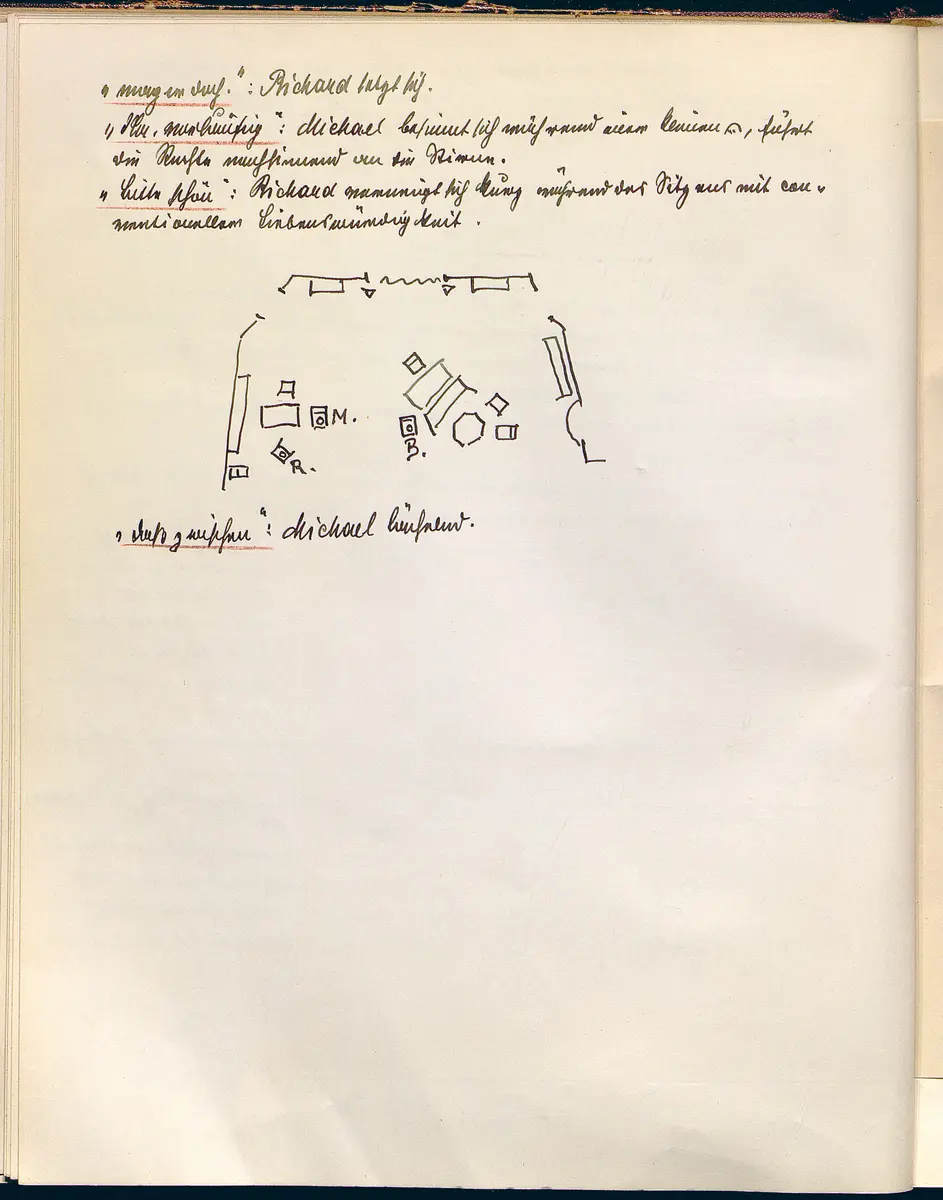 „mag er doch.“: Richard setzt sich.
vorläufig“: Michael besinnt sich während einer kleinen ⌢, führt
die Rechte nachsinnend an die Stirne.
„bitte schön“: Richard verneigt sich kurz während des Sitzens mit con-
ventioneller Liebenswürdigkeit.
M.
B.
R.
„daß zwischen“: Michael lächelnd.